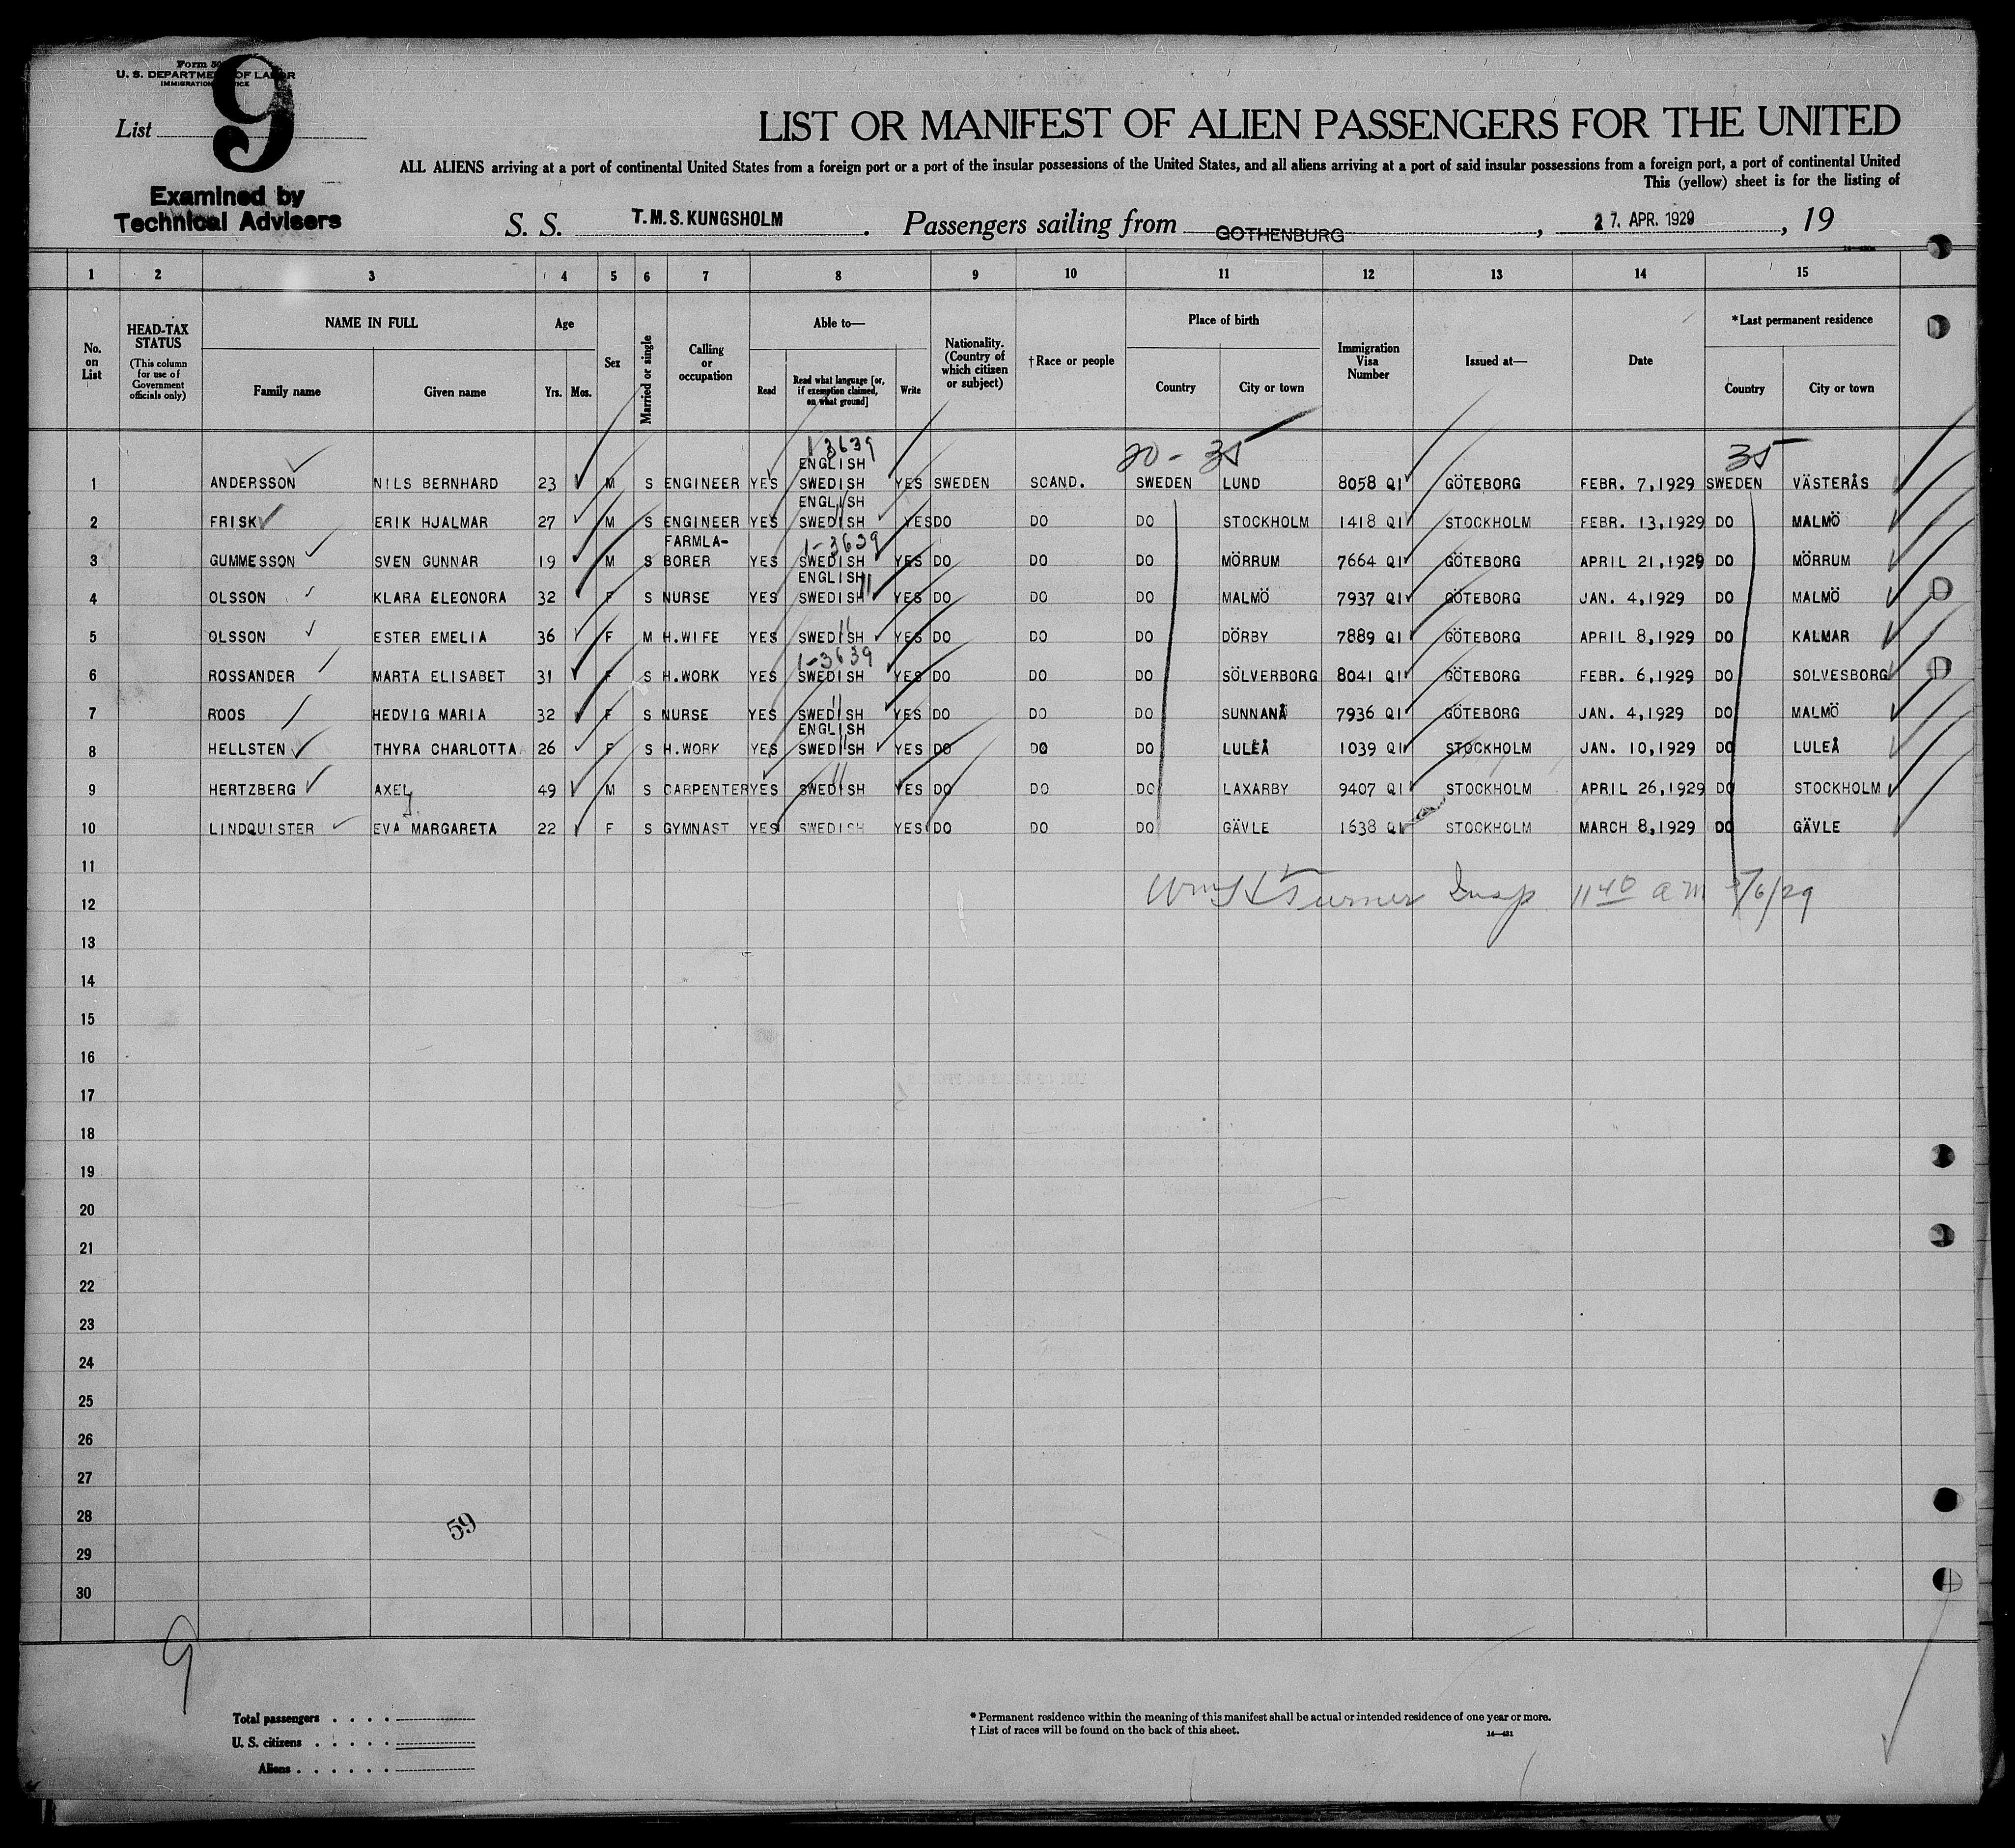 Form 50
U. S. DEPARTMENT OF LABOR
IMMIGRATION SERVICE
List 9
LIST OR MANIFEST OF ALIEN PASSENGERS FOR THE UNITED
ALL ALIENS arriving at a port of continental United States from a foreign port or a port of the insular possessions of the United States, and all aliens arriving at a port of said insular possessions from a foreign port, a port of continental United
This (yellow) sheet is for the listing of
Examined by
Technical Advisers
S. S. T.M.S. KUNGSHOLM . Passengers sailing from GOTHENBURG , 27. APR. 1929 , 19
1 2 3 4 5 6 7 8 9 10 11 12 13 14 15
No. on List
HEAD-TAX STATUS (This column for use of Government officials only)
NAME IN FULL Family name Given name
Age Yrs. Mos.
Sex
Married or single
Calling or occupation
Able to— Read Read what language [or, if exemption claimed, on what ground] Write
Nationality. (Country of which citizen or subject)
†Race or people
Place of birth Country City or town
Immigration Visa Number
Issued at—
Date
*Last permanent residence Country City or town
1-3639 20 - 35 35
1 ANDERSSON NILS BERNHARD 23 M S ENGINEER YES ENGLISH SWEDISH YES SWEDEN SCAND. SWEDEN LUND 8058 QI GÖTEBORG FEBR. 7,1929 SWEDEN VÄSTERÅS
2 FRISK ERIK HJALMAR 27 M S ENGINEER YES ENGLISH SWEDISH YES DO DO DO STOCKHOLM 1418 QI STOCKHOLM FEBR. 13,1929 DO MALMÖ
1-3639
3 GUMMESSON SVEN GUNNAR 19 M S FARMLA-BORER YES SWEDISH YES DO DO DO MÖRRUM 7664 QI GÖTEBORG APRIL 21,1929 DO MÖRRUM
4 OLSSON KLARA ELEONORA 32 F S NURSE YES ENGLISH SWEDISH YES DO DO DO MALMÖ 7937 QI GÖTEBORG JAN. 4,1929 DO MALMÖ
5 OLSSON ESTER EMELIA 36 F M H.WIFE YES SWEDISH YES DO DO DO DÖRBY 7889 QI GÖTEBORG APRIL 8,1929 DO KALMAR
1-3639
6 ROSSANDER MARTA ELISABET 31 F S H.WORK YES SWEDISH YES DO DO DO SÖLVERBORG 8041 QI GÖTEBORG FEBR. 6,1929 DO SOLVESBORG
7 ROOS HEDVIG MARIA 32 F S NURSE YES SWEDISH YES DO DO DO SUNNANÅ 7936 QI GÖTEBORG JAN. 4,1929 DO MALMÖ
8 HELLSTEN THYRA CHARLOTTA 26 F S H.WORK YES ENGLISH SWEDISH YES DO DO DO LULEÅ 1039 QI STOCKHOLM JAN. 10,1929 DO LULEÅ
9 HERTZBERG AXEL 49 M S CARPENTER YES SWEDISH YES DO DO DO LAXARBY 9407 QI STOCKHOLM APRIL 26,1929 DO STOCKHOLM
10 LINDQUISTER EVA MARGARETA 22 F S GYMNAST YES SWEDISH YES DO DO DO GÄVLE 1638 QI STOCKHOLM MARCH 8,1929 DO GÄVLE
11
12 Turner Insp 11 40 a m 5/6/29
13
14
15
16
17
18
19
20
21
22
23
24
25
26
27
28 59
29
30
9
Total passengers
U. S. citizens
Aliens
* Permanent residence within the meaning of this manifest shall be actual or intended residence of one year or more.
† List of races will be found on the back of this sheet. 14—421